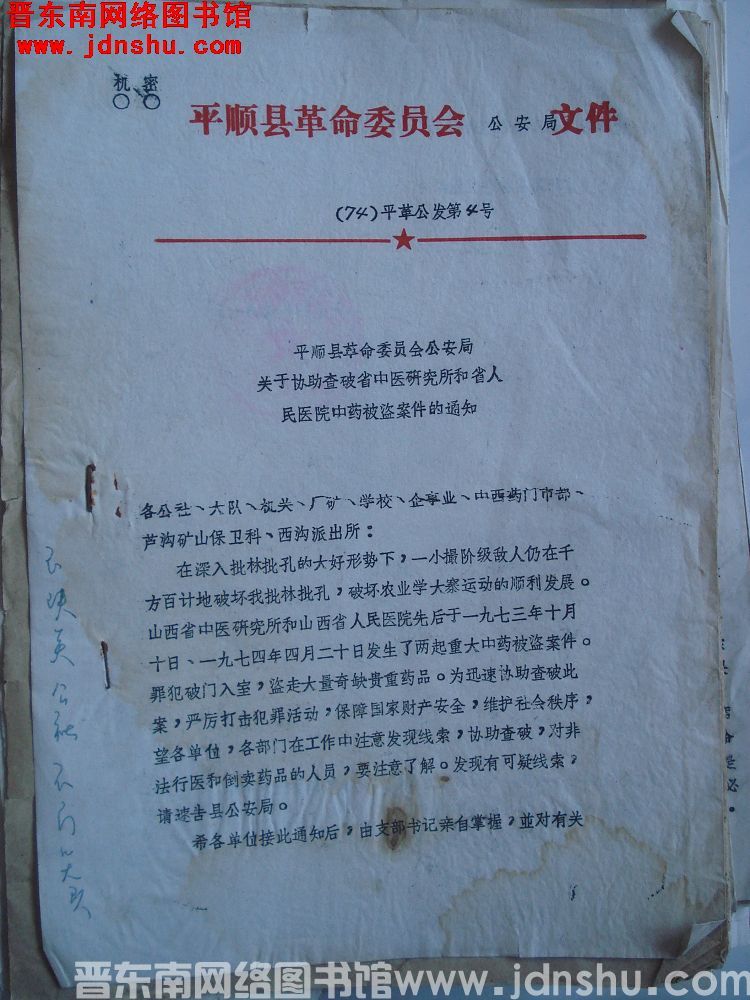 晋东南网络图书馆
www.jdnshu.com
机密
平顺县革命委员会 公安局文件
(74)平革公发第4号
平顺县革命委员会公安局
关于协助查破省中医研究所和省人
民医院中药被盗案件的通知
各公社、大队、机关、厂矿、学校、企事业、中西药门市部、
芦沟矿山保卫科、西沟派出所：
在深入批林批孔的大好形势下，一小撮阶级敌人仍在千
方百计地破坏我批林批孔，破坏农业学大寨运动的顺利发展。
山西省中医研究所和山西省人民医院先后于一九七三年十月
十日、一九七四年四月二十日发生了两起重大中药被盗案件。
罪犯破门入室，盗走大量奇缺贵重药品。为迅速协助查破此
案，严厉打击犯罪活动，保障国家财产安全，维护社会秩序，
望各单位，各部门在工作中注意发现线索，协助查破，对非
法行医和倒卖药品的人员，要注意了解。发现有可疑线索，
请速告县公安局。
希各单位接此通知后，由支部书记亲自掌握，並对有关
晋东南网络图书馆www.jdnshu.com